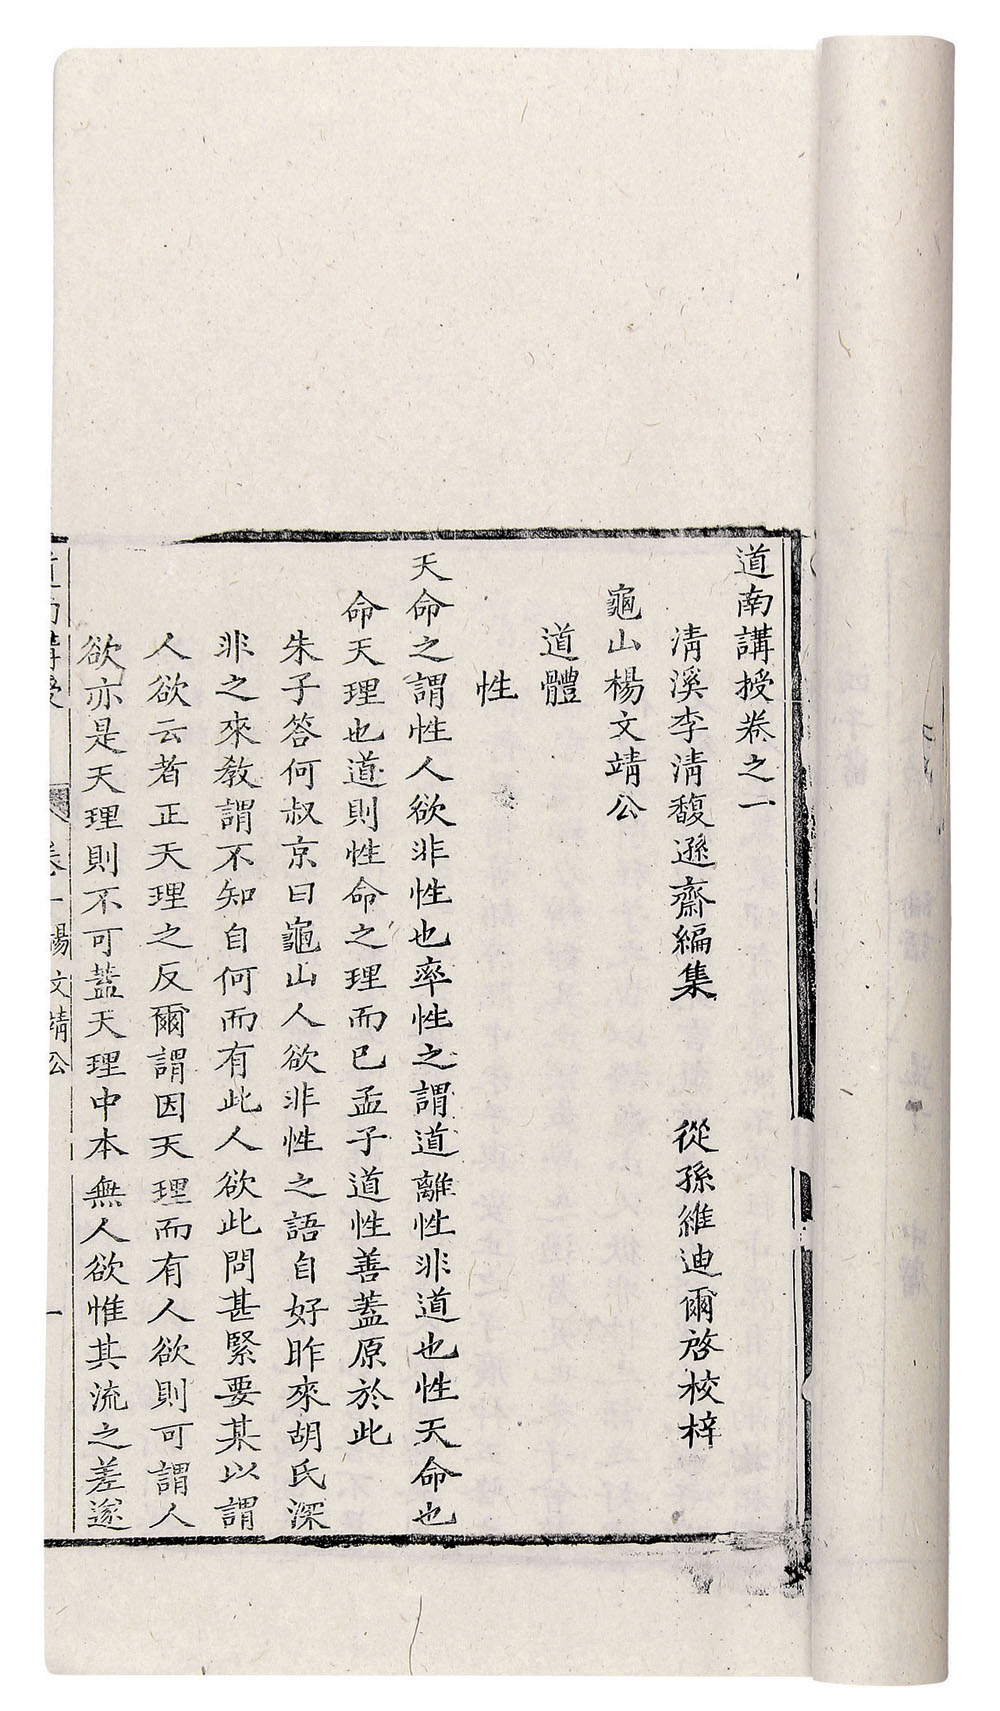 道南講授卷之一
清溪李清馥遜齋編集 從孫維迪爾啓校梓
龜山楊文靖公
道體
性
天命之謂性人欲非性也率性之謂道離性非道也性天命也
命天理也道則性命之理而已孟子道性善蓋原於此
朱子答何叔京曰龜山人欲非性之語自好昨來胡氏深
非之來教謂不知自何而有此人欲此問甚緊要某以謂
人欲云者正天理之反爾謂因天理而有人欲則可謂人
欲亦是天理則不可蓋天理中本無人欲惟其流之差遂
道南講授 卷一 楊文靖公 一